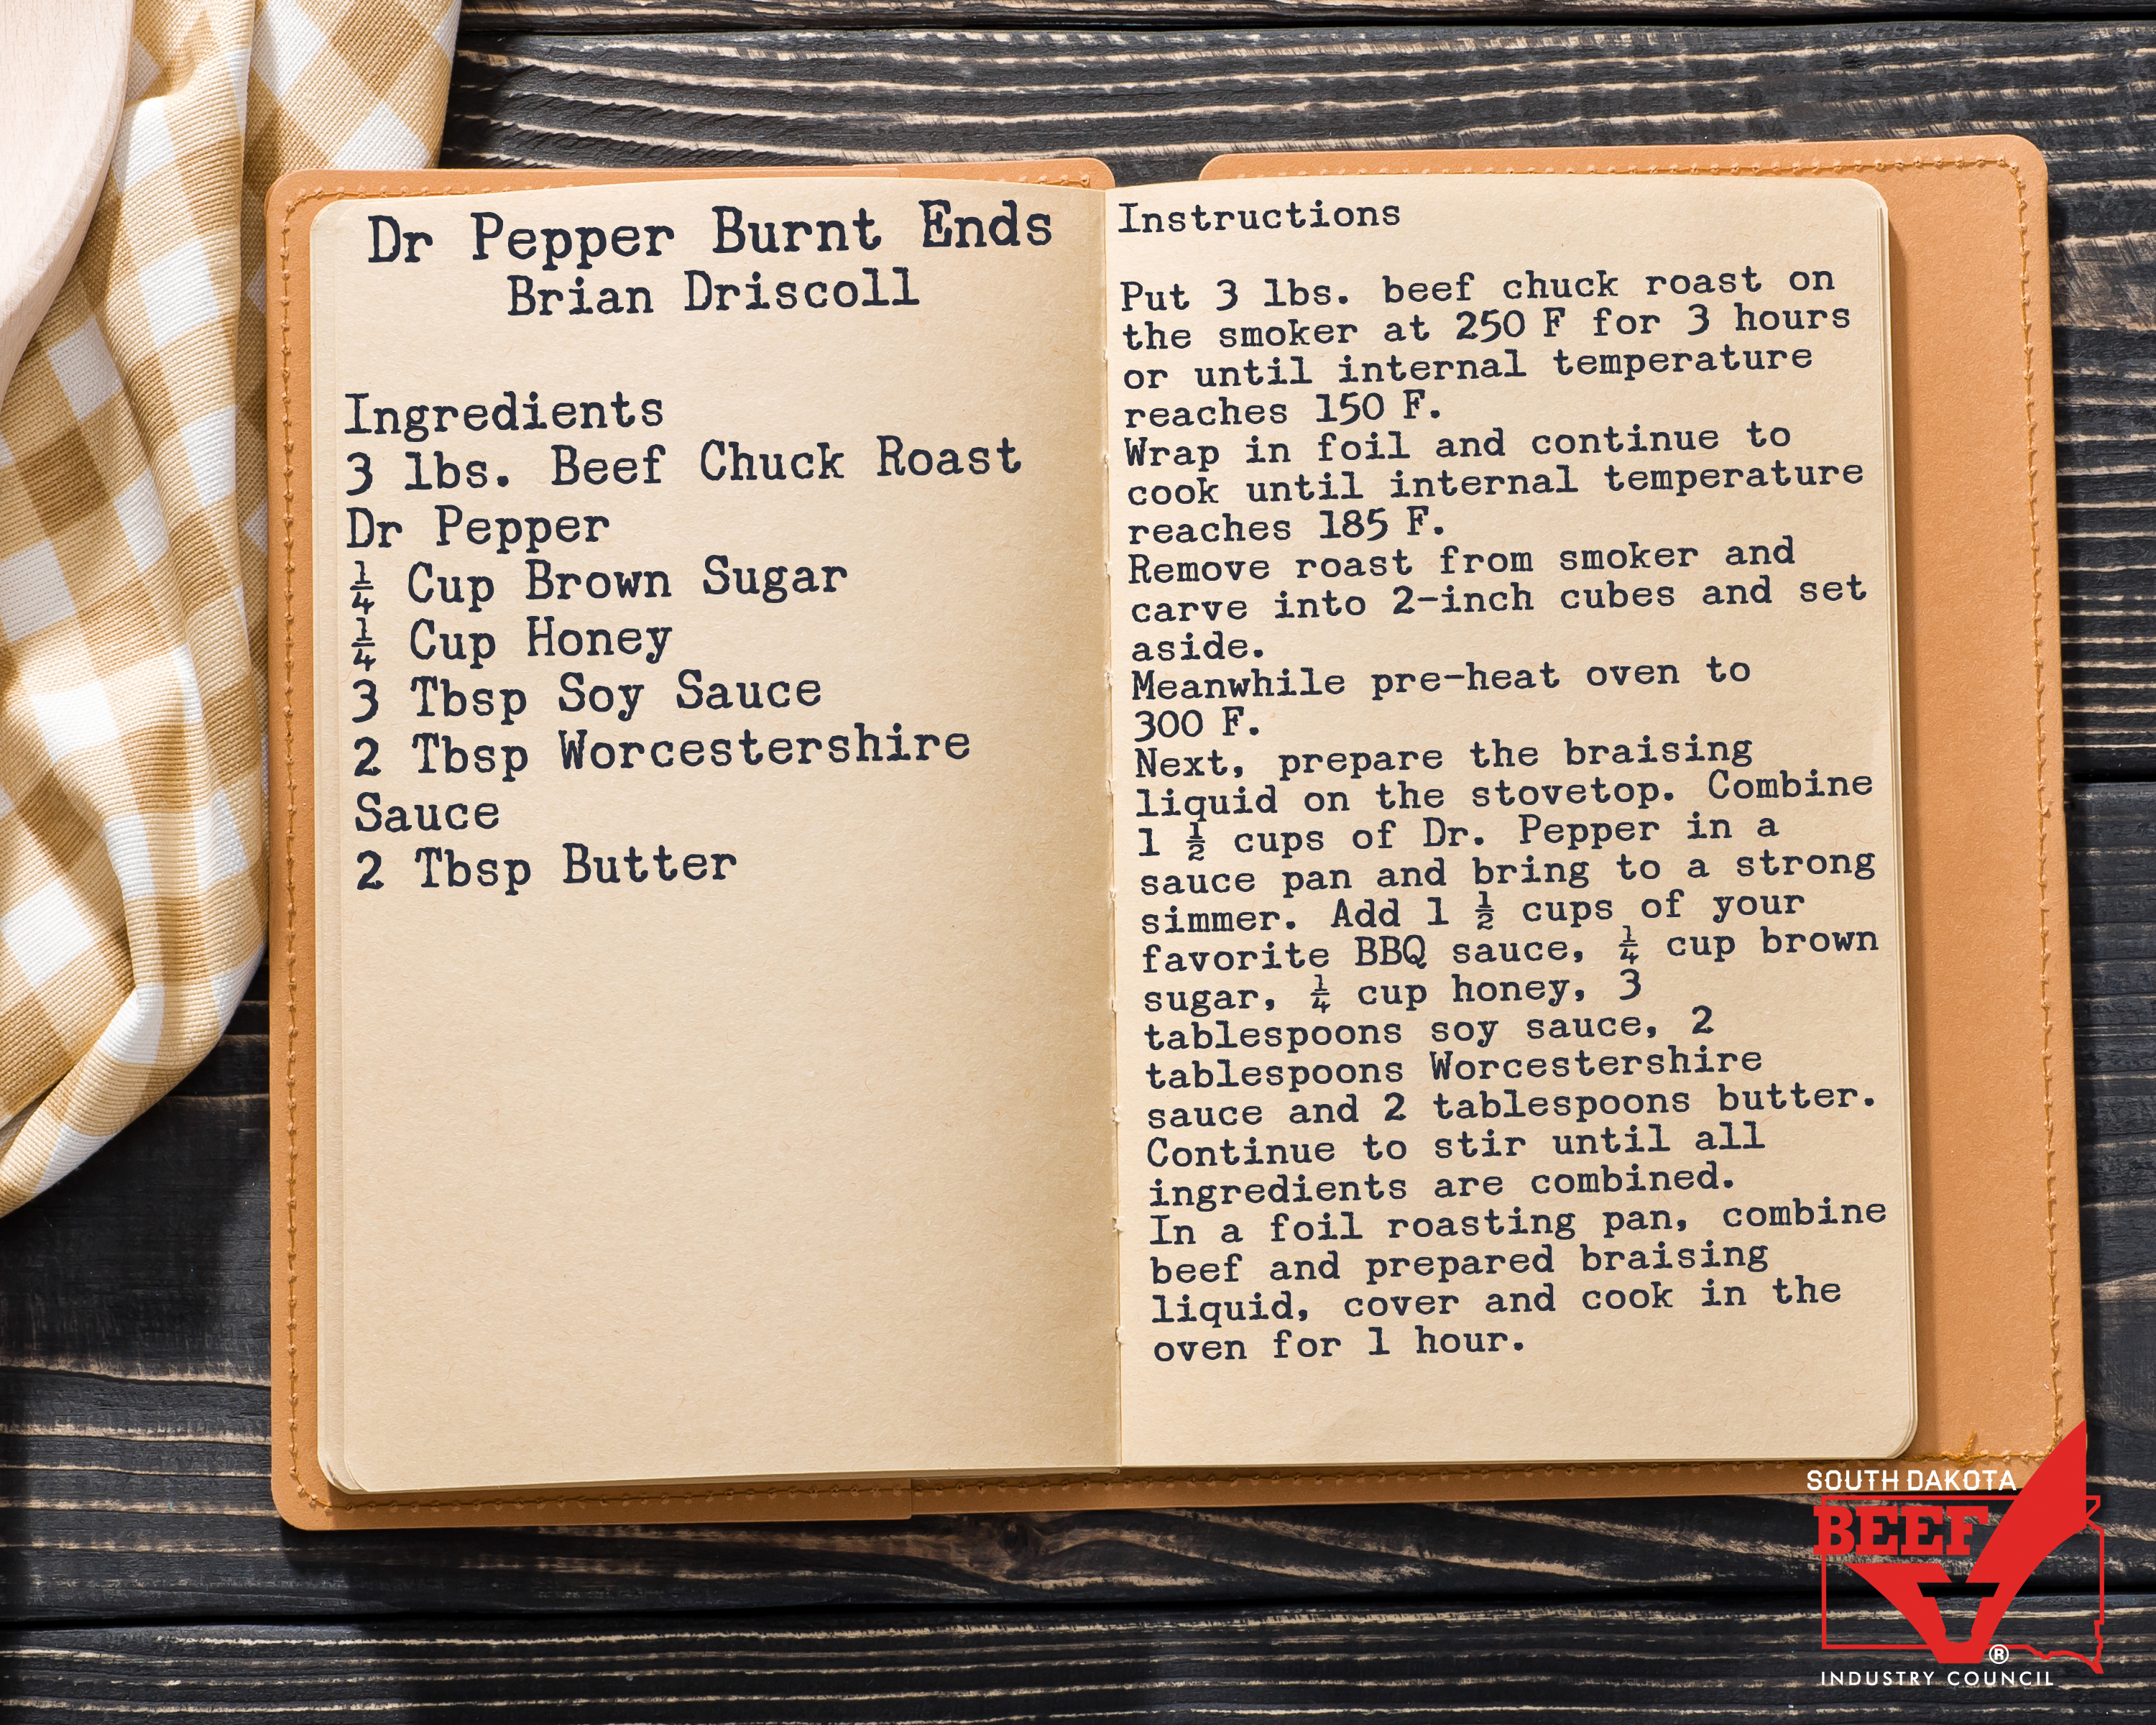 Dr Pepper Burnt Ends
Brian Driscoll
Ingredients
3 lbs. Beef Chuck Roast
Dr Pepper
¼ Cup Brown Sugar
¼ Cup Honey
3 Tbsp Soy Sauce
2 Tbsp Worcestershire
Sauce
2 Tbsp Butter
Instructions
Put 3 lbs. beef chuck roast on
the smoker at 250 F for 3 hours
or until internal temperature
reaches 150 F.
Wrap in foil and continue to
cook until internal temperature
reaches 185 F.
Remove roast from smoker and
carve into 2-inch cubes and set
aside.
Meanwhile pre-heat oven to
300 F.
Next, prepare the braising
liquid on the stovetop. Combine
1 ½ cups of Dr. Pepper in a
sauce pan and bring to a strong
simmer. Add 1 ½ cups of your
favorite BBQ sauce, ¼ cup brown
sugar, ¼ cup honey, 3
tablespoons soy sauce, 2
tablespoons Worcestershire
sauce and 2 tablespoons butter.
Continue to stir until all
ingredients are combined.
In a foil roasting pan, combine
beef and prepared braising
liquid, cover and cook in the
oven for 1 hour.
SOUTH DAKOTA
BEEF
®
INDUSTRY COUNCIL